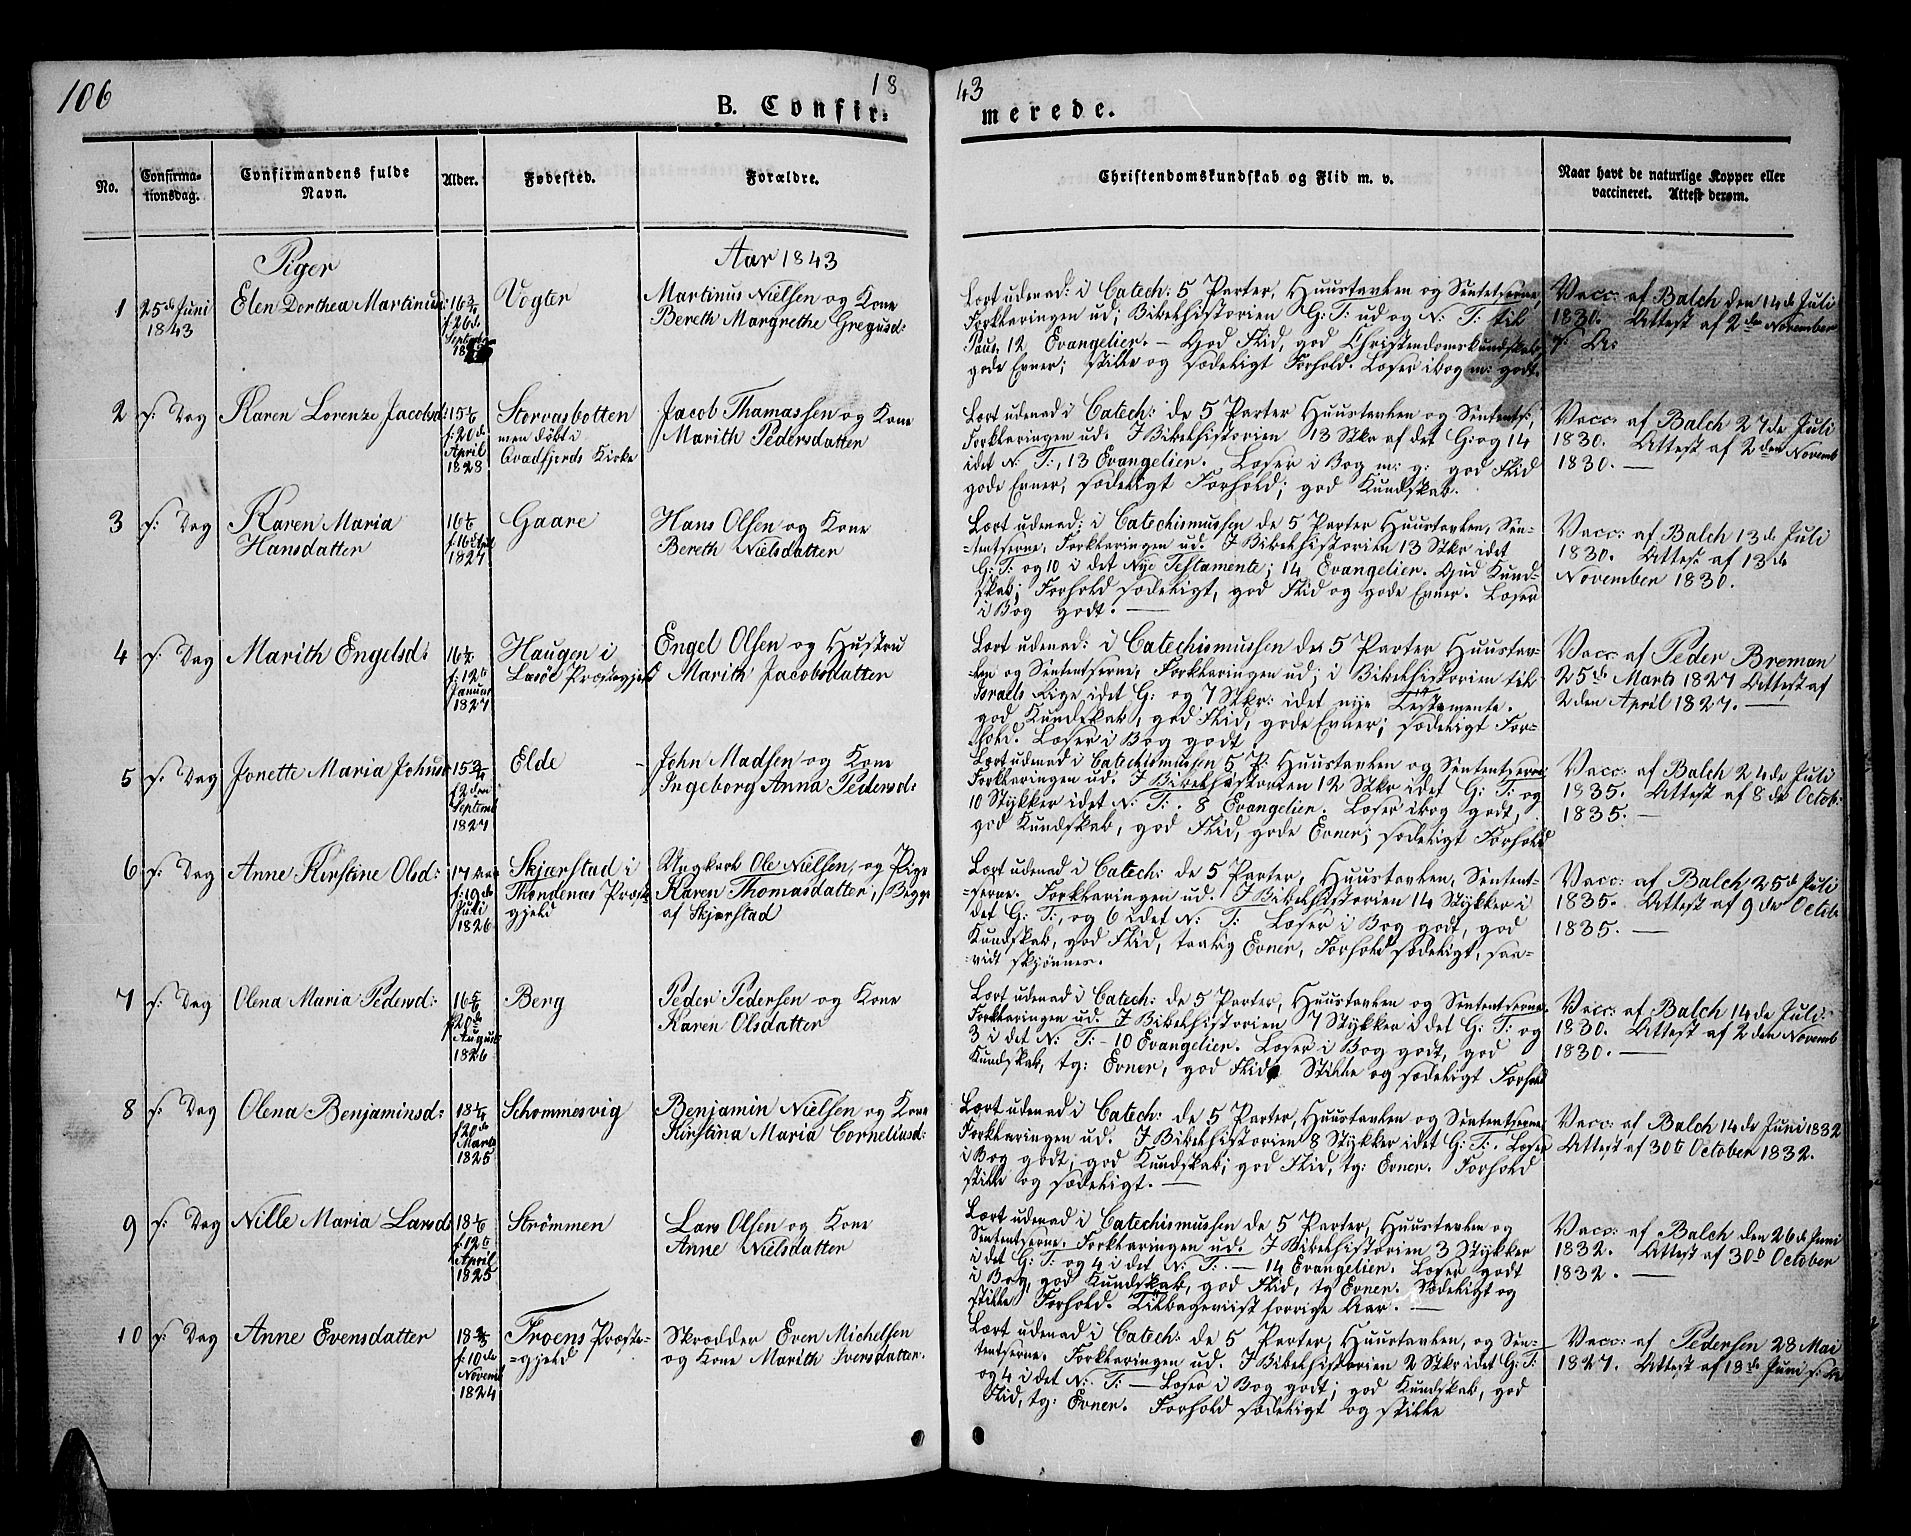 106
18
43
B. Confir-
merede.
No.
Confirma-
tionsdag.
Confirmandens fulde
Navn.
Alder.
Fødested.
Forældre.
Christendomskundskab og Flid m. v.
Naar havt de naturlige Kopper eller
vaccineret. Attest derom.
Piger
Aar 1843
1
25de Juni
1843
Elen Dorthea Martinusd:
f. 26de
Septbr
Vogter
Martinus Nielsen og Kone
Bereth Margrethe Gregusd:
Lært udenad: i Catech: 5 Parter, Huustavlen og Sententserne,
Forklaringen ud; Bibelhistorien G: T: ud og N: T: til
Paul, 12 Evangelier. — God Flid, god Christendomskundskab,
gode Evner; stille og sædeligt Forhold. Læser i bog m: godt.
Vacc: af Balch den 14de Juli
1830. Attest af 2den November
s: A:
2
s: Dag
Karen Lorenze Jacobsd:
15 1/6
f: 20de
April
1828
Storvasbotten
men døbt i
Qvædfjords Kirke
Jacob Thomassen og Kone
Marith Pedersdatter
Lært udenad i Catech: de 5 Parter Huustavlen og Sentents:,
Forklaringen ud. I Bibelhistorien 13 Stkr af det G: og 14
i det N: T:, 13 Evangelier. Læser i Bog m: g: god Flid
gode Evner, sædeligt Forhold; god Kundskab.
Vacc: af Balch 27de Juli
1830. Attest af 2den Novemb
1830. —
3
s: Dag
Karen Maria
Hansdatter
16 1/6
f. 16de
1827
Gaare
Hans Olsen og Kone
Bereth Nielsdatter
Lært udenad: i Catechismussen de 5 Parter Huustavlen, Sen-
-tentserne, Forklaringen ud. I Bibelhistorien 13 Stkr i det
G: T: og 10 i det Nye Testamente; 14 Evangelier. God Kund-
skab; Forhold sædeligt, god Flid og gode Evner. Læser
i Bog godt. —
Vacc: af Balch 13de Juli
1830. Attest af 13de
November 1830.
4
s: Dag
Marith Engelsd:
16 1/2
f: 12te
Januar
1827
Haugen i
Engel Olsen og Hustru
Marith Jacobsdatter
Lært udenad: i Catechismussen de 5 Parter Huustav-
len og Sententserne, Forklaringen ud; i Bibelhistorien til
Israels Rige i det G: og 7 Stkr: i det nye Testamente.
god Kundskab, god Flid, gode Evner; sædeligt For-
hold. Læser i Bog godt
Vacc: af Peder Breman
25de Marts 1827 Attest af
2den April 1827. —
5
s: Dag
Jonette Maria Johnsd
15 3/4
f. 2den
Septemb
1827
Elde
John Madsen og Kone
Ingeborg Anna Pedersd:
Lært udenad i Catechismusen 5 P: Huustavlen og Sententserne
Forklaringen ud. I Bibelhistorien 12 Stkr i det G: T: og
10 Stykker i det N: T:. 8 Evangelier. Læser i bog godt,
god Kundskab, god Flid, gode Evner; sædeligt Forhold
Vacc: af Balch 24de Juli
1835. Attest af 8de Octob:
1835. —
6
s: Dag
Anne Kirstine Olsd:
17
f: 19de
Juli
1826
Skjærstad i
Throndenæs Præste-
gjeld
Ungkarl Ole Nielsen, og Pige
Karen Thomasdatter, Begge
af Skjærstad
Lært udenad i Catech: de 5 Parter, Huustavlen, Sentent-
-serne. Forklaringen ud. I Bibelhistorien 14 Stykker i
det G: T:, og 6 i det N: T: Læser i Bog godt, god
Kundskab, god Flid, taalig Evner, Forhold sædeligt, saa-
-vidt skjønnes.
Vacc: af Balch 25de Juli
1835. Attest af 9de Octob
1835. —
7
s: Dag
Olena Maria Pedersd:
16 5/6
f 20de
August
1826
Berg
Peder Pedersen og Kone
Karen Olsdatter
Lært udenad i Catech: de 5 Parter, Huustavlen og Sententserne.
Forklaringen ud. I Bibelhistorien 7 Stykker i det G: T: og
3 i det N: T: - 10 Evangelier. Læser i Bog godt, god
Kundskab, tg: Evner, god Flid, Stille og sædeligt Forhold
Vacc: af Balch 14de Juli
1830. Attest af 2den Novemb
1830. —
8
s: Dag
Olena Benjaminsd:
18 1/4
f 20de
Marts
1825
Schommesvig
Benjamin Nielsen og Kone
Kirstina Maria Corneliusd:
Lært udenad i Catech: de 5 Parter, Huustavlen og Sententserne
Forklaringen ud. I Bibelhistorien 8 Stykker i det G: T:. Læser
i Bog godt; god Kundskab; god Flid, tg: Evner. Forhold
stille og sædeligt. —
Vacc: af Balch 14de Juni 1832
Attest af 30te October 1832.
9
s: Dag
Nille Maria Larsd
18 1/6
f. 12te
April
1825
Strømmen
Lars Olsen og Kone
Anne Nielsdatter
Lært udenad i Catechismussen de 5 Parter, Huustavlen og
Sententserne. Forklaringen ud. I Bibelhistorien 3 Stykker
i det G: T: og 4 i det N: T:. — 14 Evangelier. Læser godt
i Bog, god Kundskab, god Flid, tg Evner. Sædeligt og
stille Forhold. Tilbageviist forrige Aar. —
Vacc: af Balch den 26de Juni
1832. Attest af 30te October
1832. —
10
s: Dag
Anne Evensdatter
f: 10de
Novemb
1824
Troens Præste-
-gjeld
Skrædder Even Michelsen
og Kone Marith Iversdatter.
Lært udenad i Catech: de 5 Parter, Huustavlen, og Sen-
tentserne. Forklaringen ud. I Bibelhistorien 2 Stkr i det G: T:
og 4 i det N: T: — Læser i Bog godt; god Kundskab, god
Flid, tg: Evner. Forhold sædeligt og stille
Vacc: af Pedersen 28 Mai
1827. Attest af 18de Juni s: A